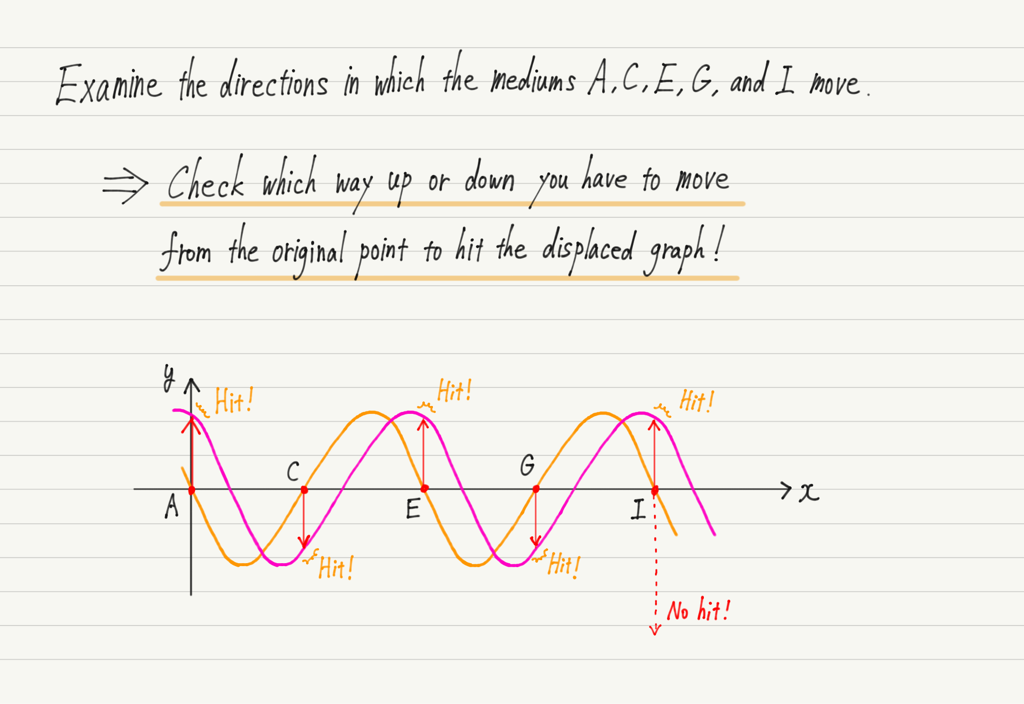 Examine the directions in which the mediums A, C, E, G, and I move.
⇒ Check which way up or down you have to move
from the original point to hit the displaced graph!
y
Hit!
Hit!
Hit!
C
G
x
A
E
I
Hit!
Hit!
No hit!